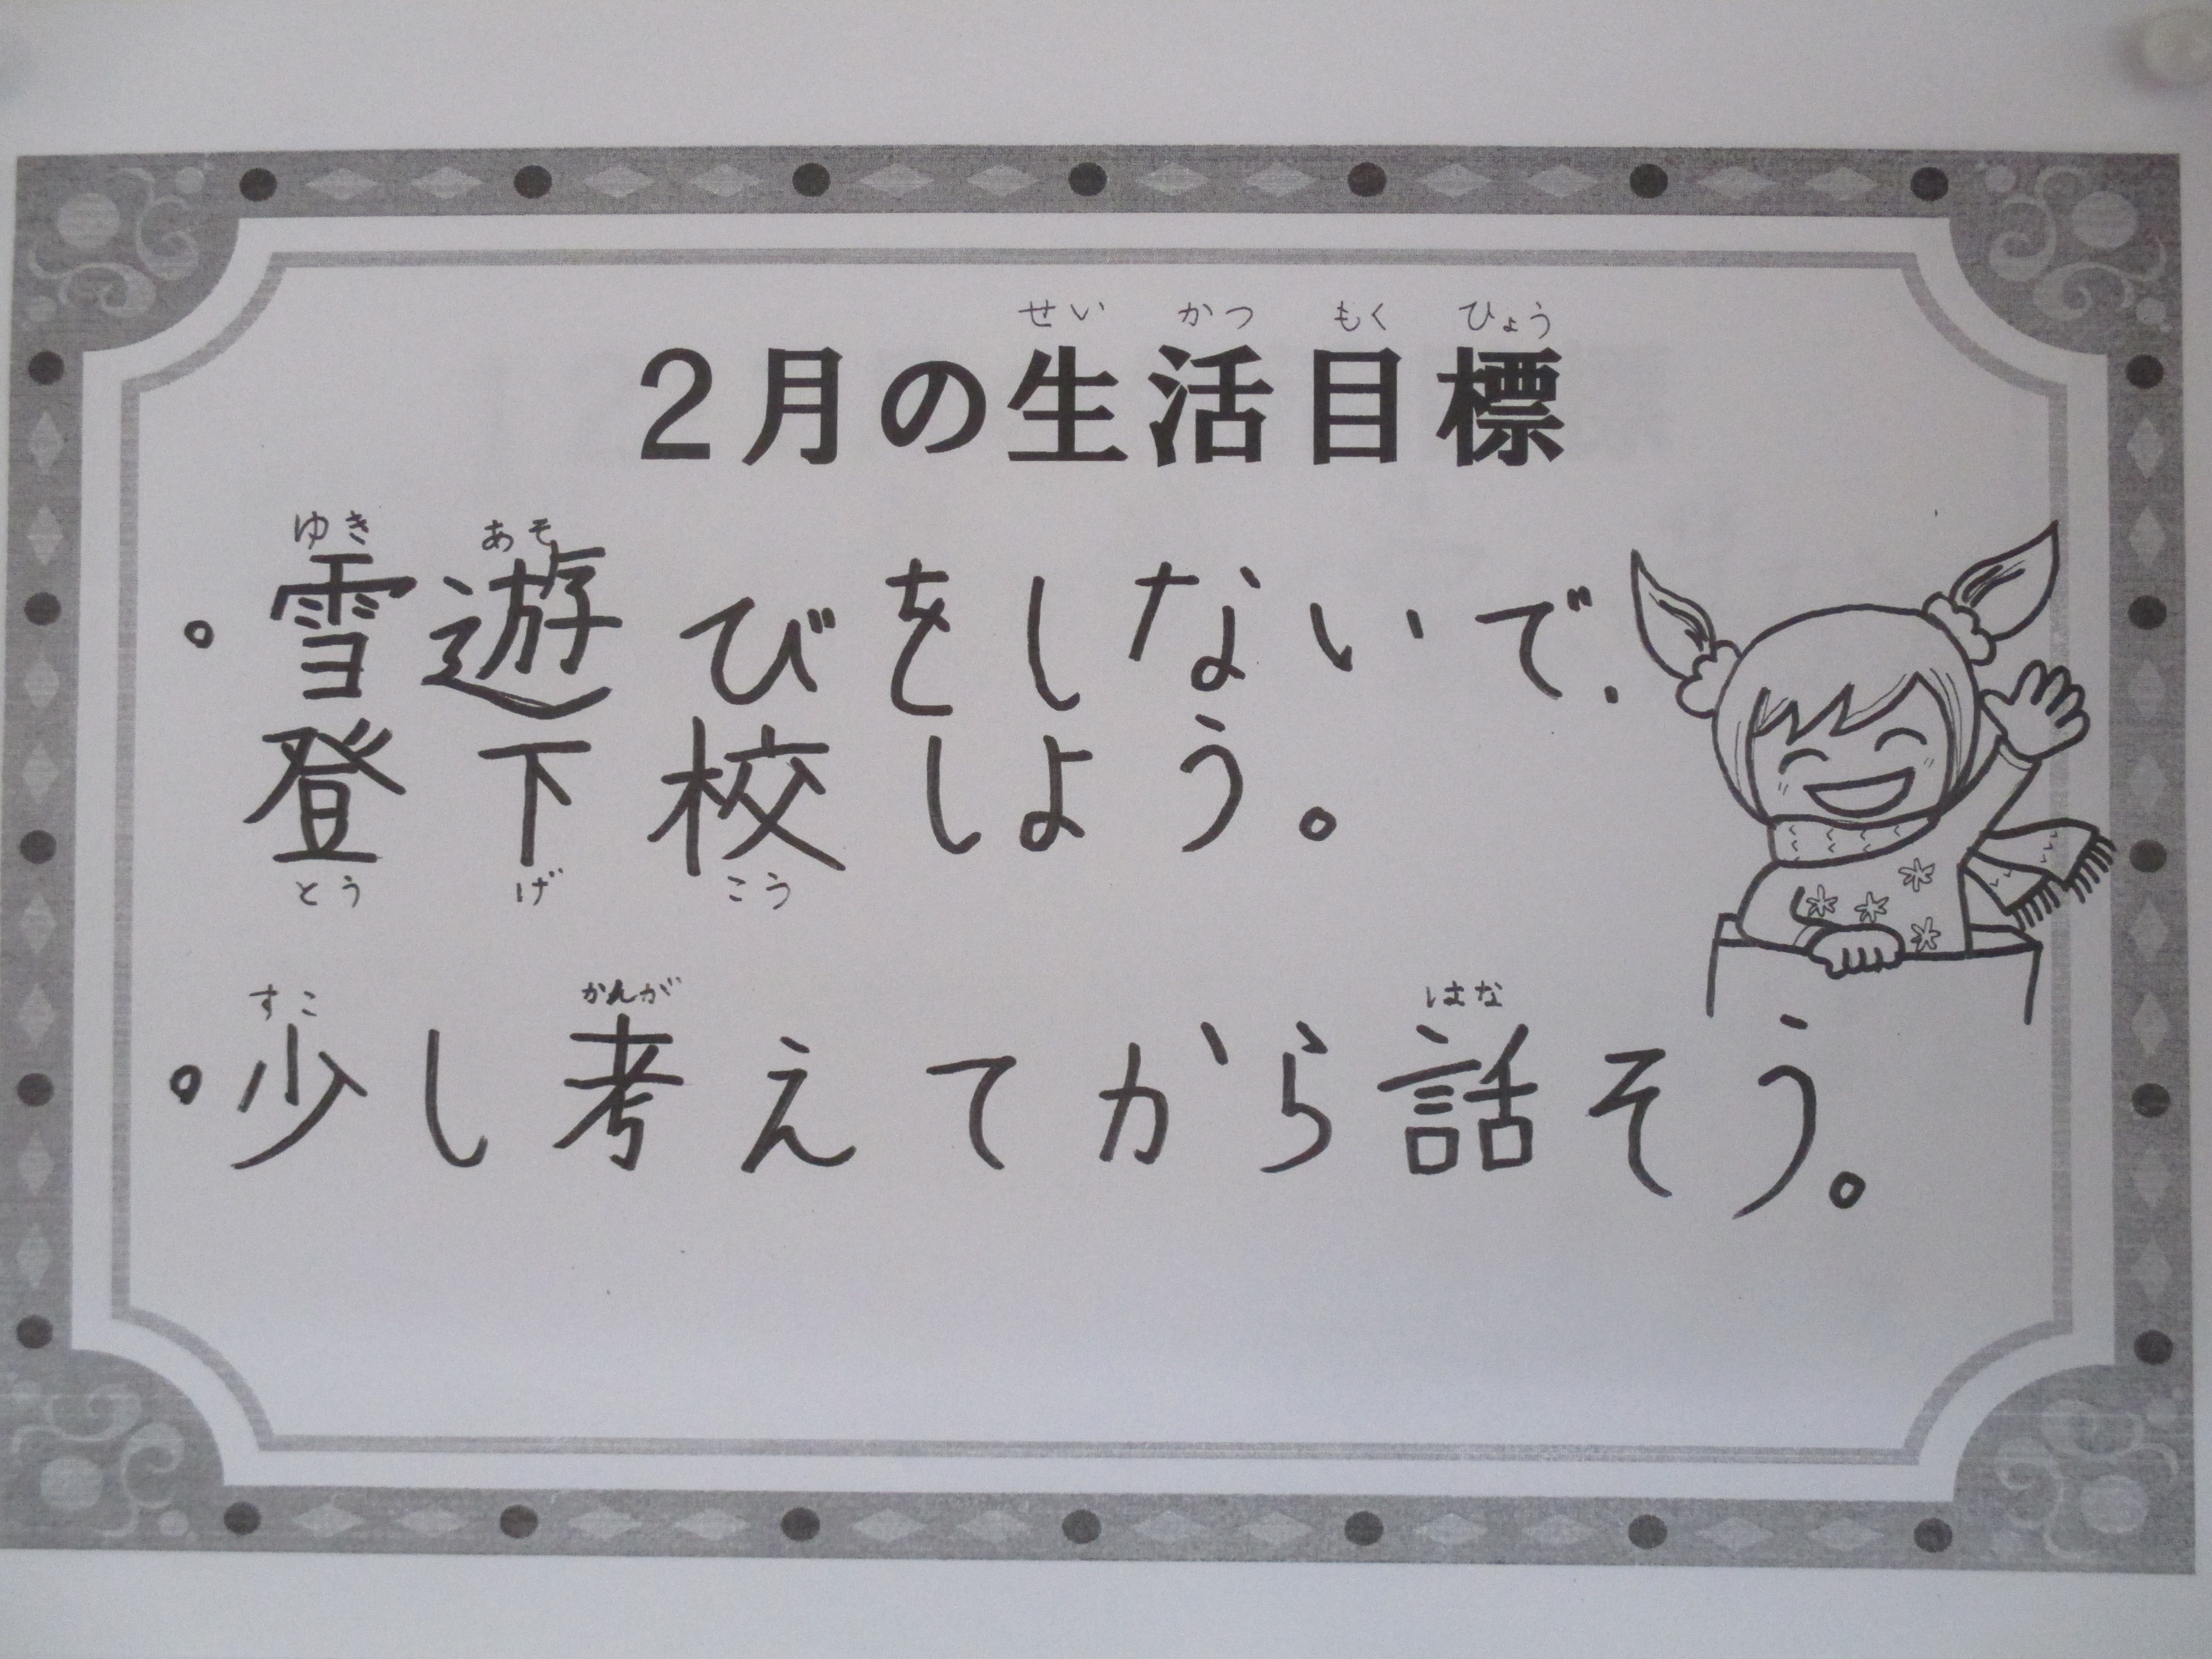 せいかつもくひょう
2月の生活目標
ゆき あそ
。雪遊びをしないで、
登下校しよう。
とう げ こう
すこ かんが はな
。少し考えてから話そう。